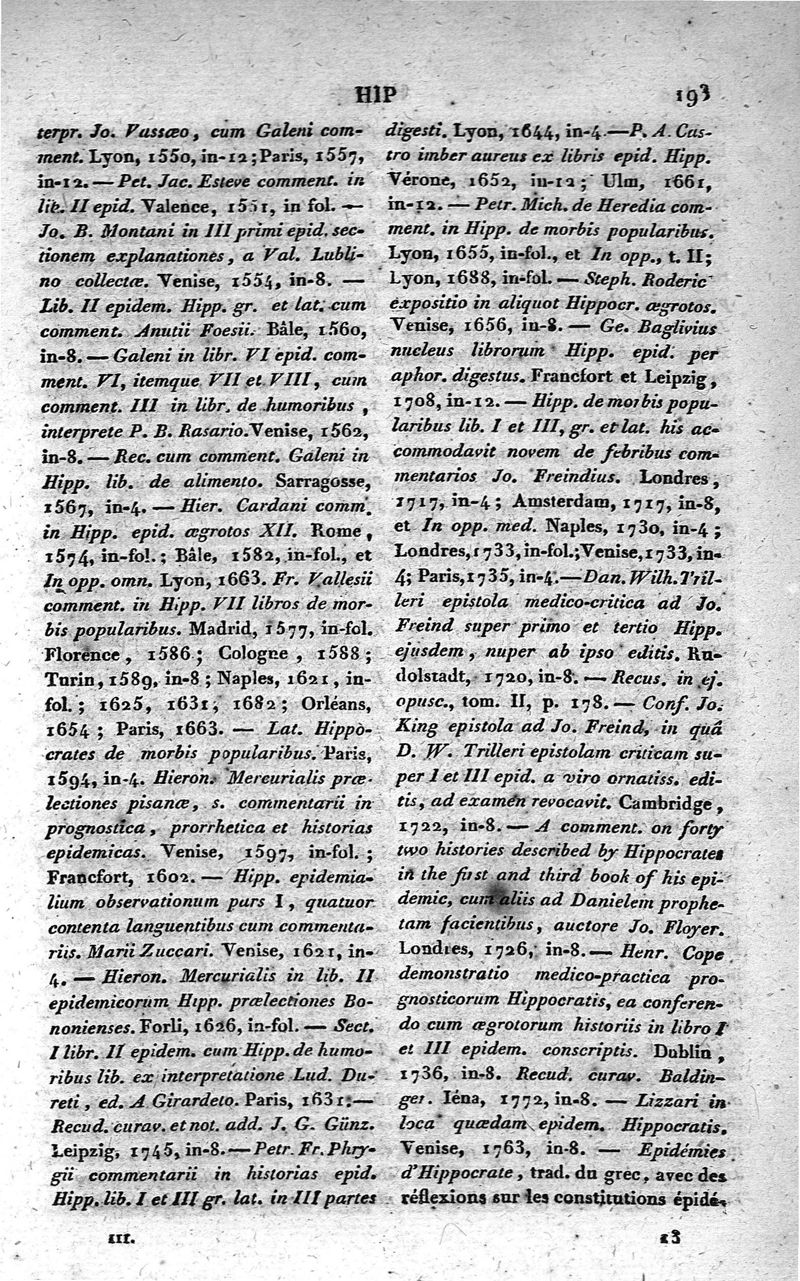 HIP
193
terpr. Jo. Vassæo, cum Galeni com-
ment. Lyon, 1550, in-12; Paris, 1557,
in-12. — Pet. Jac. Esteve comment. in
lib. II epid. Valence, 1551, in fol. —
Jo. B. Montani in III primi epid. sec-
tionem explanationes, a Val. Lubli-
no collectæ. Venise, 1554, in-8. —
Lib. II epidem. Hipp. gr. et lat. cum
comment. Anutii Foesii. Bâle, 1560,
in-8. — Galeni in libr. VI epid. com-
ment. VI, itemque VII et VIII, cum
comment. III in libr. de humoribus,
interprete P. B. Rasario. Venise, 1562,
in-8. — Rec. cum comment. Galeni in
Hipp. lib. de alimento. Sarragosse,
1567, in-4. — Hier. Cardani comm.
in Hipp. epid. ægrotos XII. Rome,
1574, in-fol.; Bâle, 1582, in-fol., et
In opp. omn. Lyon, 1663. Fr. Vallesii
comment. in Hipp. VII libros de mor-
bis popularibus. Madrid, 1577, in-fol.
Florence, 1586; Cologne, 1588;
Turin, 1589, in-8; Naples, 1621, in-
fol.; 1625, 1631, 1682; Orléans,
1654; Paris, 1663. — Lat. Hippo-
crates de morbis popularibus. Paris,
1594, in-4. Hieron. Mercurialis præ-
lectiones pisanæ, s. commentarii in
prognostica, prorrhetica et historias
epidemicas. Venise, 1597, in-fol.;
Francfort, 1602. — Hipp. epidemia-
lium observationum pars I, quatuor
contenta languentibus cum commenta-
riis. Marii Zuccari. Venise, 1621, in-
4. — Hieron. Mercurialis in lib. II
epidemicorum Hipp. prælectiones Bo-
nonienses. Forli, 1626, in-fol. — Sect.
I libr. II epidem. cum Hipp. de humo-
ribus lib. ex interpretatione Lud. Du-
reti, ed. A Girardeto. Paris, 1631: —
Recud. curav. et not. add. J. G. Günz.
Leipzig, 1745, in-8. — Petr. Fr. Phry-
gii commentarii in historias epid.
Hipp. lib. I et III gr. lat. in III partes
digesti. Lyon, 1644, in-4. — P. A. Cas-
tro imber aureus ex libris epid. Hipp.
Vérone, 1652, in-12; Ulm, 1661,
in-12. — Petr. Mich. de Heredia com-
ment. in Hipp. de morbis popularibus.
Lyon, 1655, in-fol., et In opp., t. II;
Lyon, 1688, in-fol. — Steph. Roderic
expositio in aliquot Hippocr. ægrotos.
Venise, 1656, in-8. — Ge. Baglivius
nucleus librorum Hipp. epid. per
aphor. digestus. Francfort et Leipzig,
1708, in-12. — Hipp. de morbis popu-
laribus lib. I et III, gr. et lat. his ac-
commodavit novem de febribus com-
mentarios Jo. Freindius. Londres,
1717, in-4; Amsterdam, 1717, in-8,
et In opp. med. Naples, 1730, in-4;
Londres, 1733, in-fol.; Venise, 1733, in-
4; Paris, 1735, in-4. — Dan. Wilh. Tril-
leri epistola medico-critica ad Jo.
Freind super primo et tertio Hipp.
ejusdem, nuper ab ipso editis. Ru-
dolstadt, 1720, in-8. — Recus. in ej.
opusc., tom. II, p. 178. — Conf. Jo.
King epistola ad Jo. Freind, in quâ
D. W. Trilleri epistolam criticam su-
per I et III epid. a viro ornatiss. edi-
tis, ad examen revocavit. Cambridge,
1722, in-8. — A comment. on forty
two histories described by Hippocrates
in the first and third book of his epi-
demic, cum aliis ad Danielem prophe-
tam facientibus, auctore Jo. Floyer.
Londres, 1726, in-8. — Henr. Cope
demonstratio medico-practica pro-
gnosticorum Hippocratis, ea conferen-
do cum ægrotorum historiis in libro I
et III epidem. conscriptis. Dublin,
1736, in-8. Recud. curav. Baldin-
ger. Iéna, 1772, in-8. — Lizzari in
loca quædam epidem. Hippocratis.
Venise, 1763, in-8. — Epidémies
d'Hippocrate, trad. du grec, avec des
réflexions sur les constitutions épidé-
III.
13